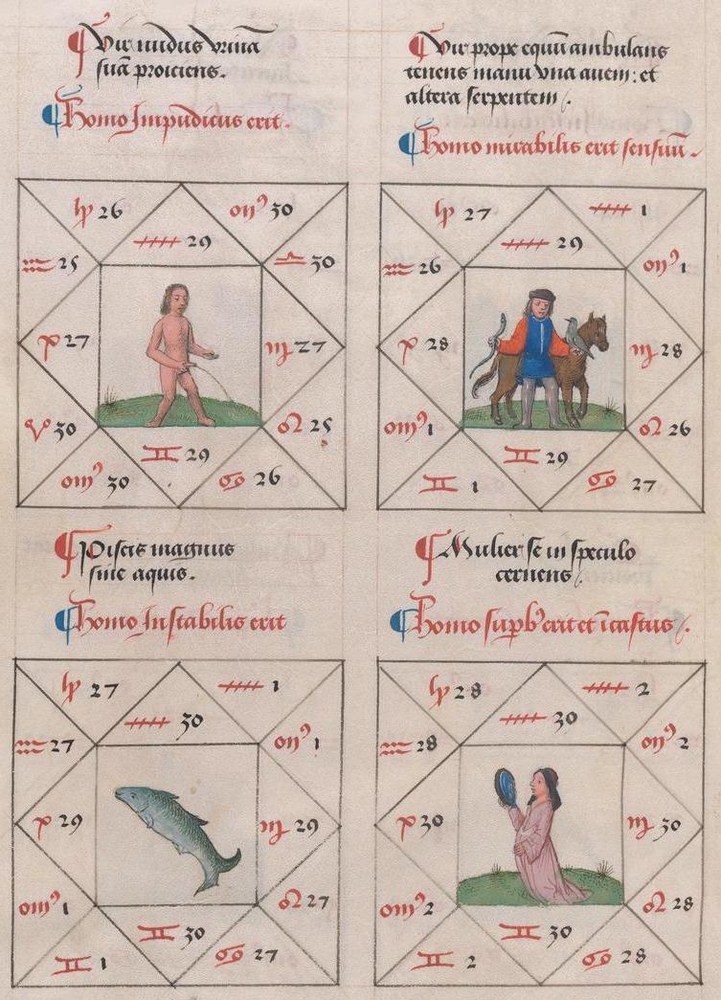 ¶ Vir nudus vrinā
suā proiciens.
¶ Homo Impudicus erit.
♑ 26
♐ 29
♒ 25
♎ 30
♓ 27
♍ 27
♈ 30
♌ 25
♊ 29
♋ 26
¶ Vir prope equū ambulans
tenens manu vna auem: et
altera serpentem /.
¶ Homo mirabilis erit sensuū.
♑ 27
♐ 1
♐ 29
♒ 26
♓ 28
♍ 28
♌ 26
♊ 29
♊ 1
♋ 27
¶ Piscis magnus
sine aquis.
¶ Homo Instabilis erit
♑ 27
♐ 1
♐ 30
♒ 27
♓ 29
♍ 29
♌ 27
♊ 30
♊ 1
♋ 27
¶ Mulier se in speculo
cernens /.
¶ Homo supb' erit et īcastus /.
♑ 28
♐ 2
♐ 30
♒ 28
♓ 30
♍ 30
♌ 28
♊ 30
♊ 2
♋ 28